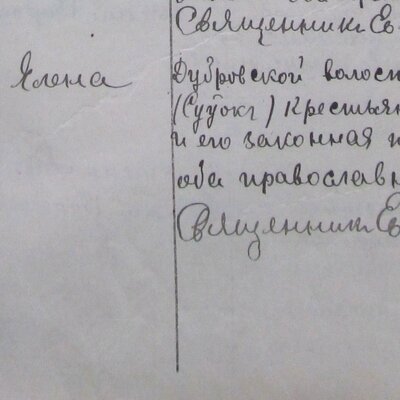 Священникъ Ев
Ялена
Дубровской волост
Крестьян
и его законная
оба православн
Священникъ Ев